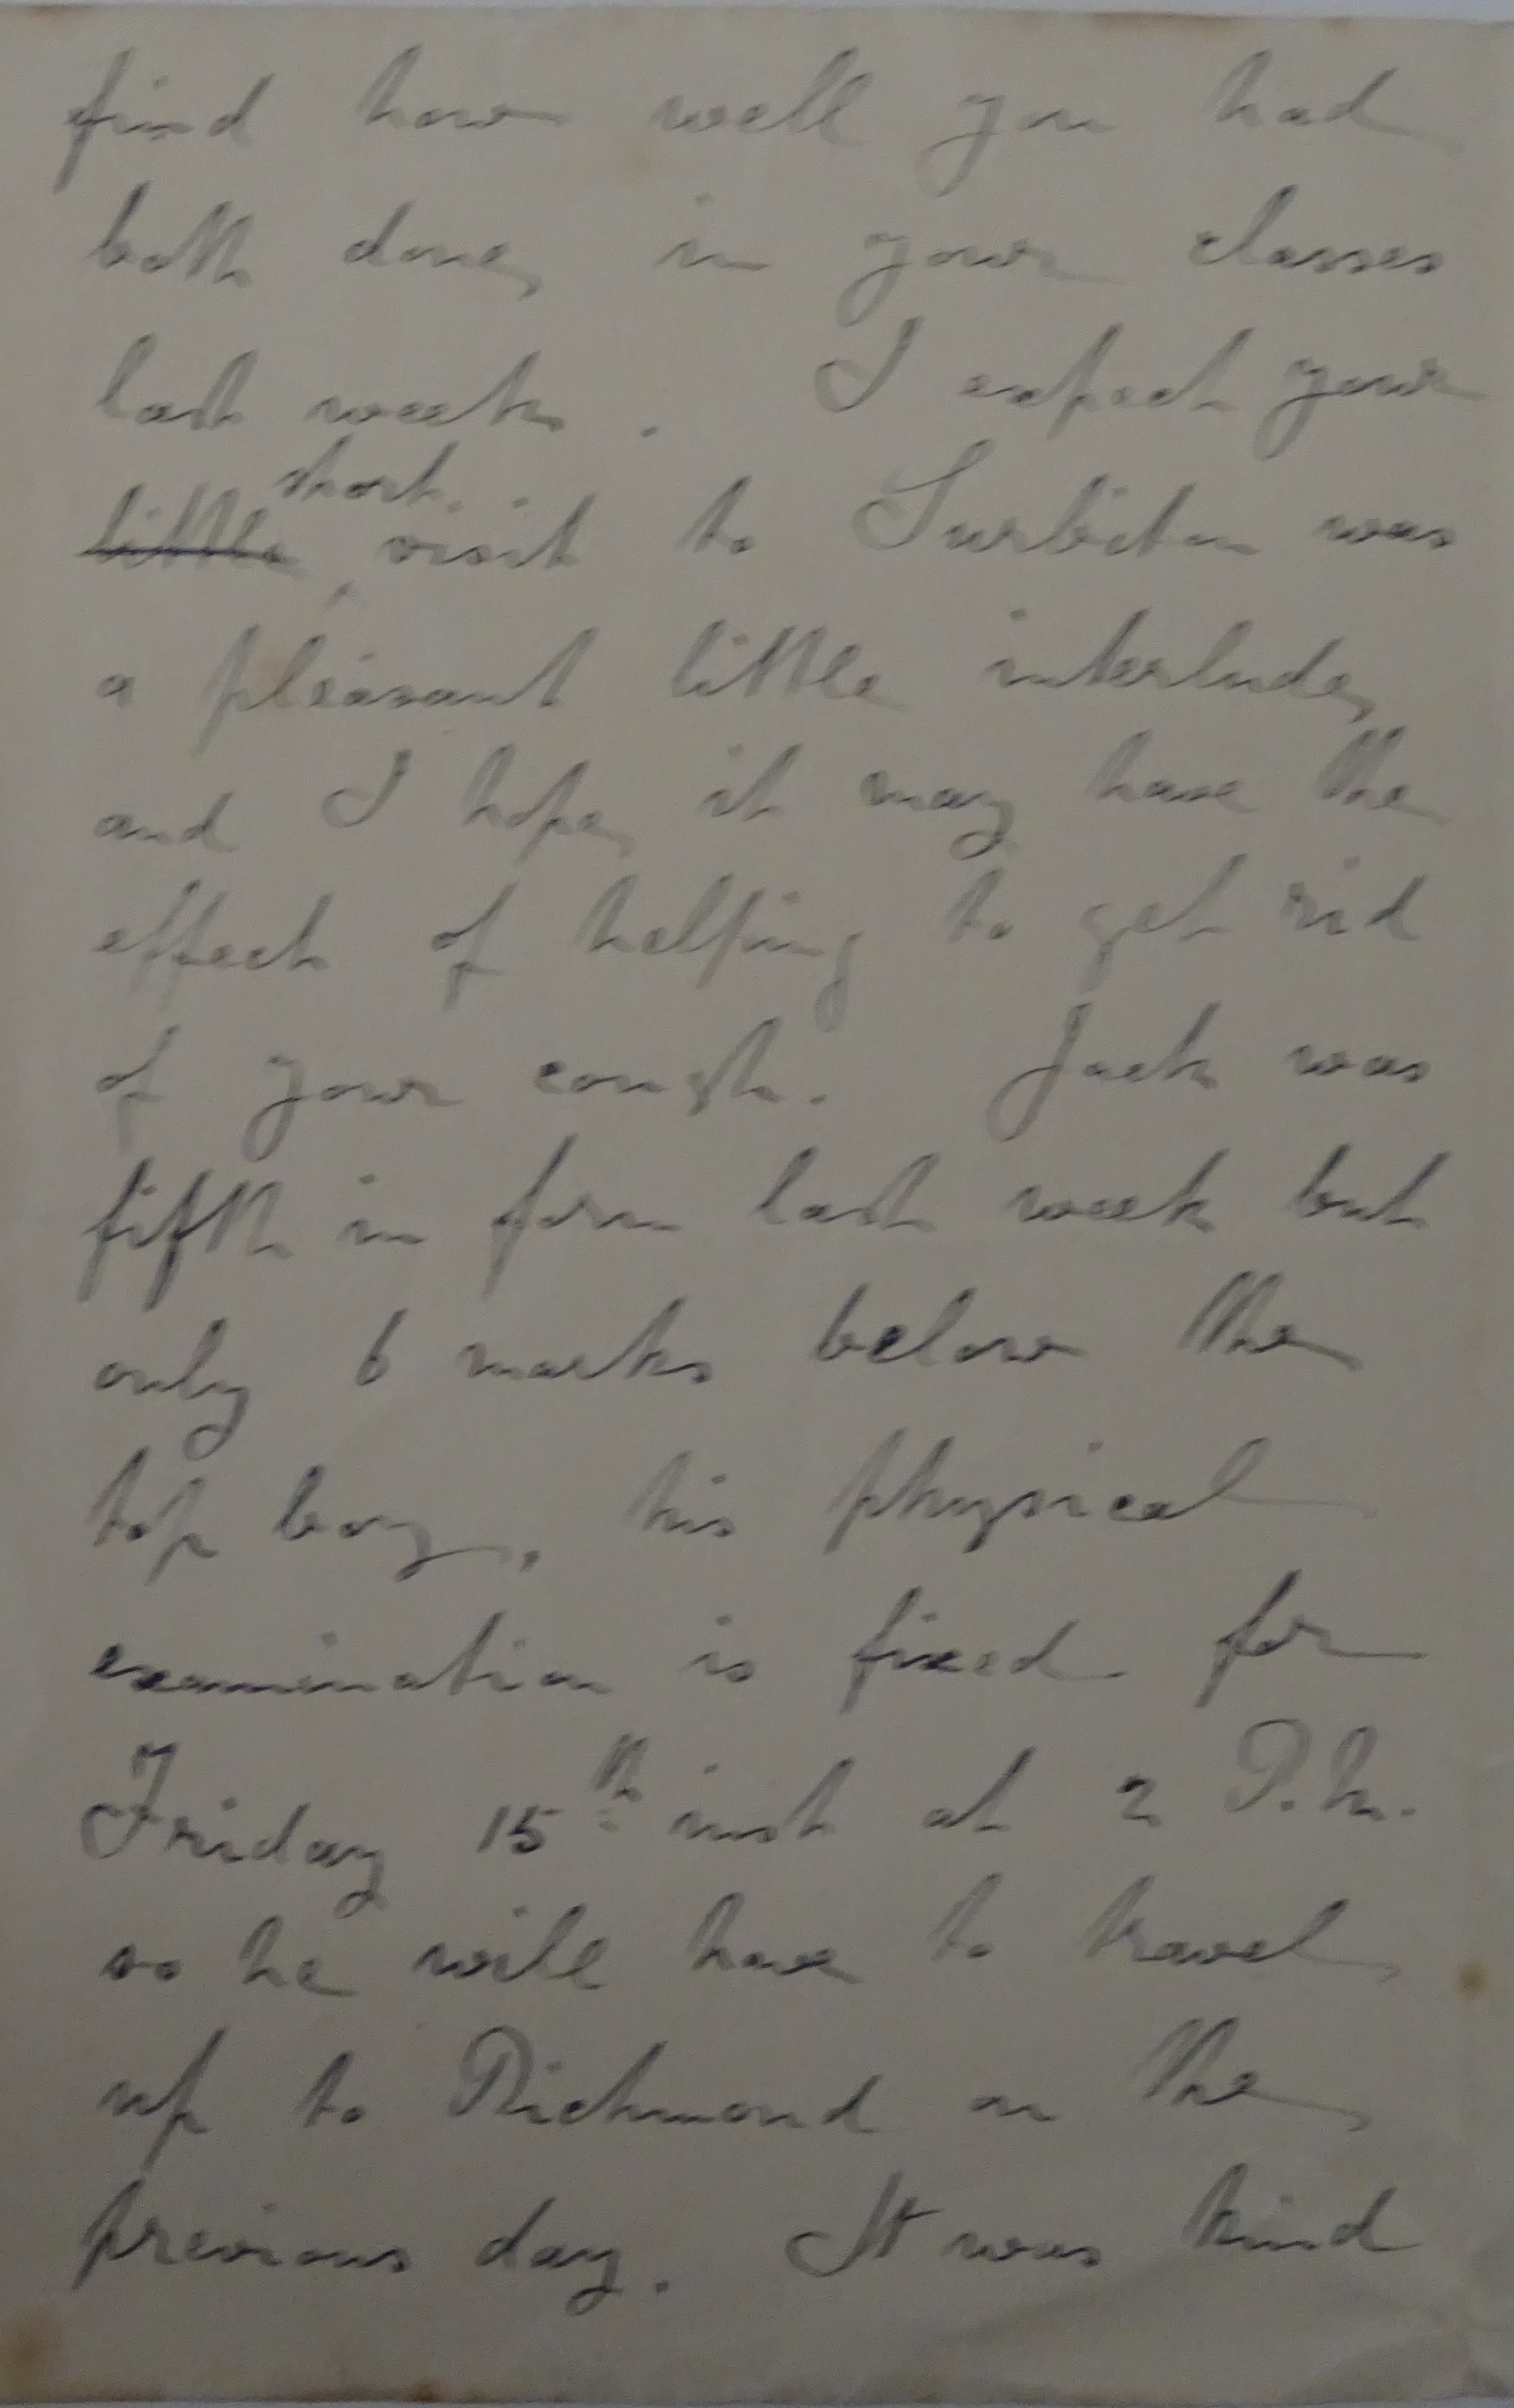 find how well you had
both done, in your classes
last week. I expect your
short
little visit to Surbiton was
a pleasant little interlude,
and I hope, it may have the
effect of helping to get rid
of your cough. Jack was
fifth in form last week but
only 6 marks below the
top boy, his physical
examination is fixed for
Friday 15th inst at 2 P.M.
so he will have to travel
up to Richmond on the
previous day. It was kind